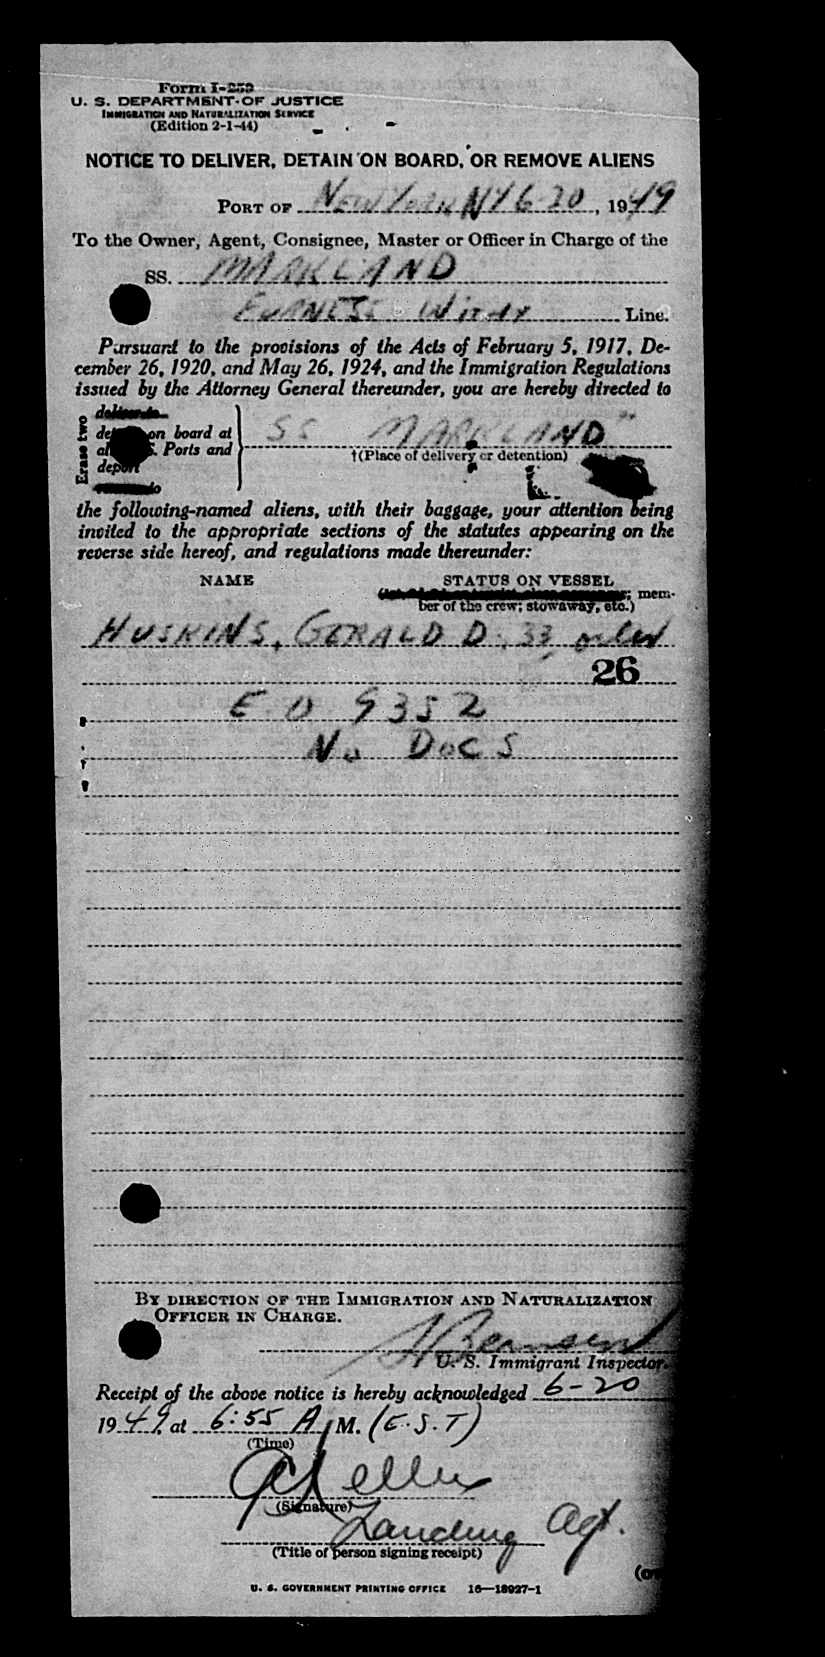 Form I-259
U. S. DEPARTMENT OF JUSTICE
IMMIGRATION AND NATURALIZATION SERVICE
(Edition 2-1-44)
NOTICE TO DELIVER, DETAIN ON BOARD, OR REMOVE ALIENS
PORT OF NEW YORK NY 6-20, 1949
To the Owner, Agent, Consignee, Master or Officer in Charge of the
SS. MARKLAND
FURNESS WITHY Line.
Pursuant to the provisions of the Acts of February 5, 1917, De-
cember 26, 1920, and May 26, 1924, and the Immigration Regulations
issued by the Attorney General thereunder, you are hereby directed to
Erase two
on board at
Ports and
SS MARKLAND"
†(Place of delivery or detention)
the following-named aliens, with their baggage, your attention being
invited to the appropriate sections of the statutes appearing on the
reverse side hereof, and regulations made thereunder:
NAME STATUS ON VESSEL
mem-
ber of the crew; stowaway, etc.)
HUSKINS, GERALD D. 33, oiler
26
E.O 9352
No DOCS
BY DIRECTION OF THE IMMIGRATION AND NATURALIZATION
OFFICER IN CHARGE.
U. S. Immigrant Inspector.
Receipt of the above notice is hereby acknowledged 6-20
1949, at 6:55 A M. (E.S.T)
(Time)
(Signature)
Landing Agt.
(Title of person signing receipt)
U. S. GOVERNMENT PRINTING OFFICE 16—18927-1